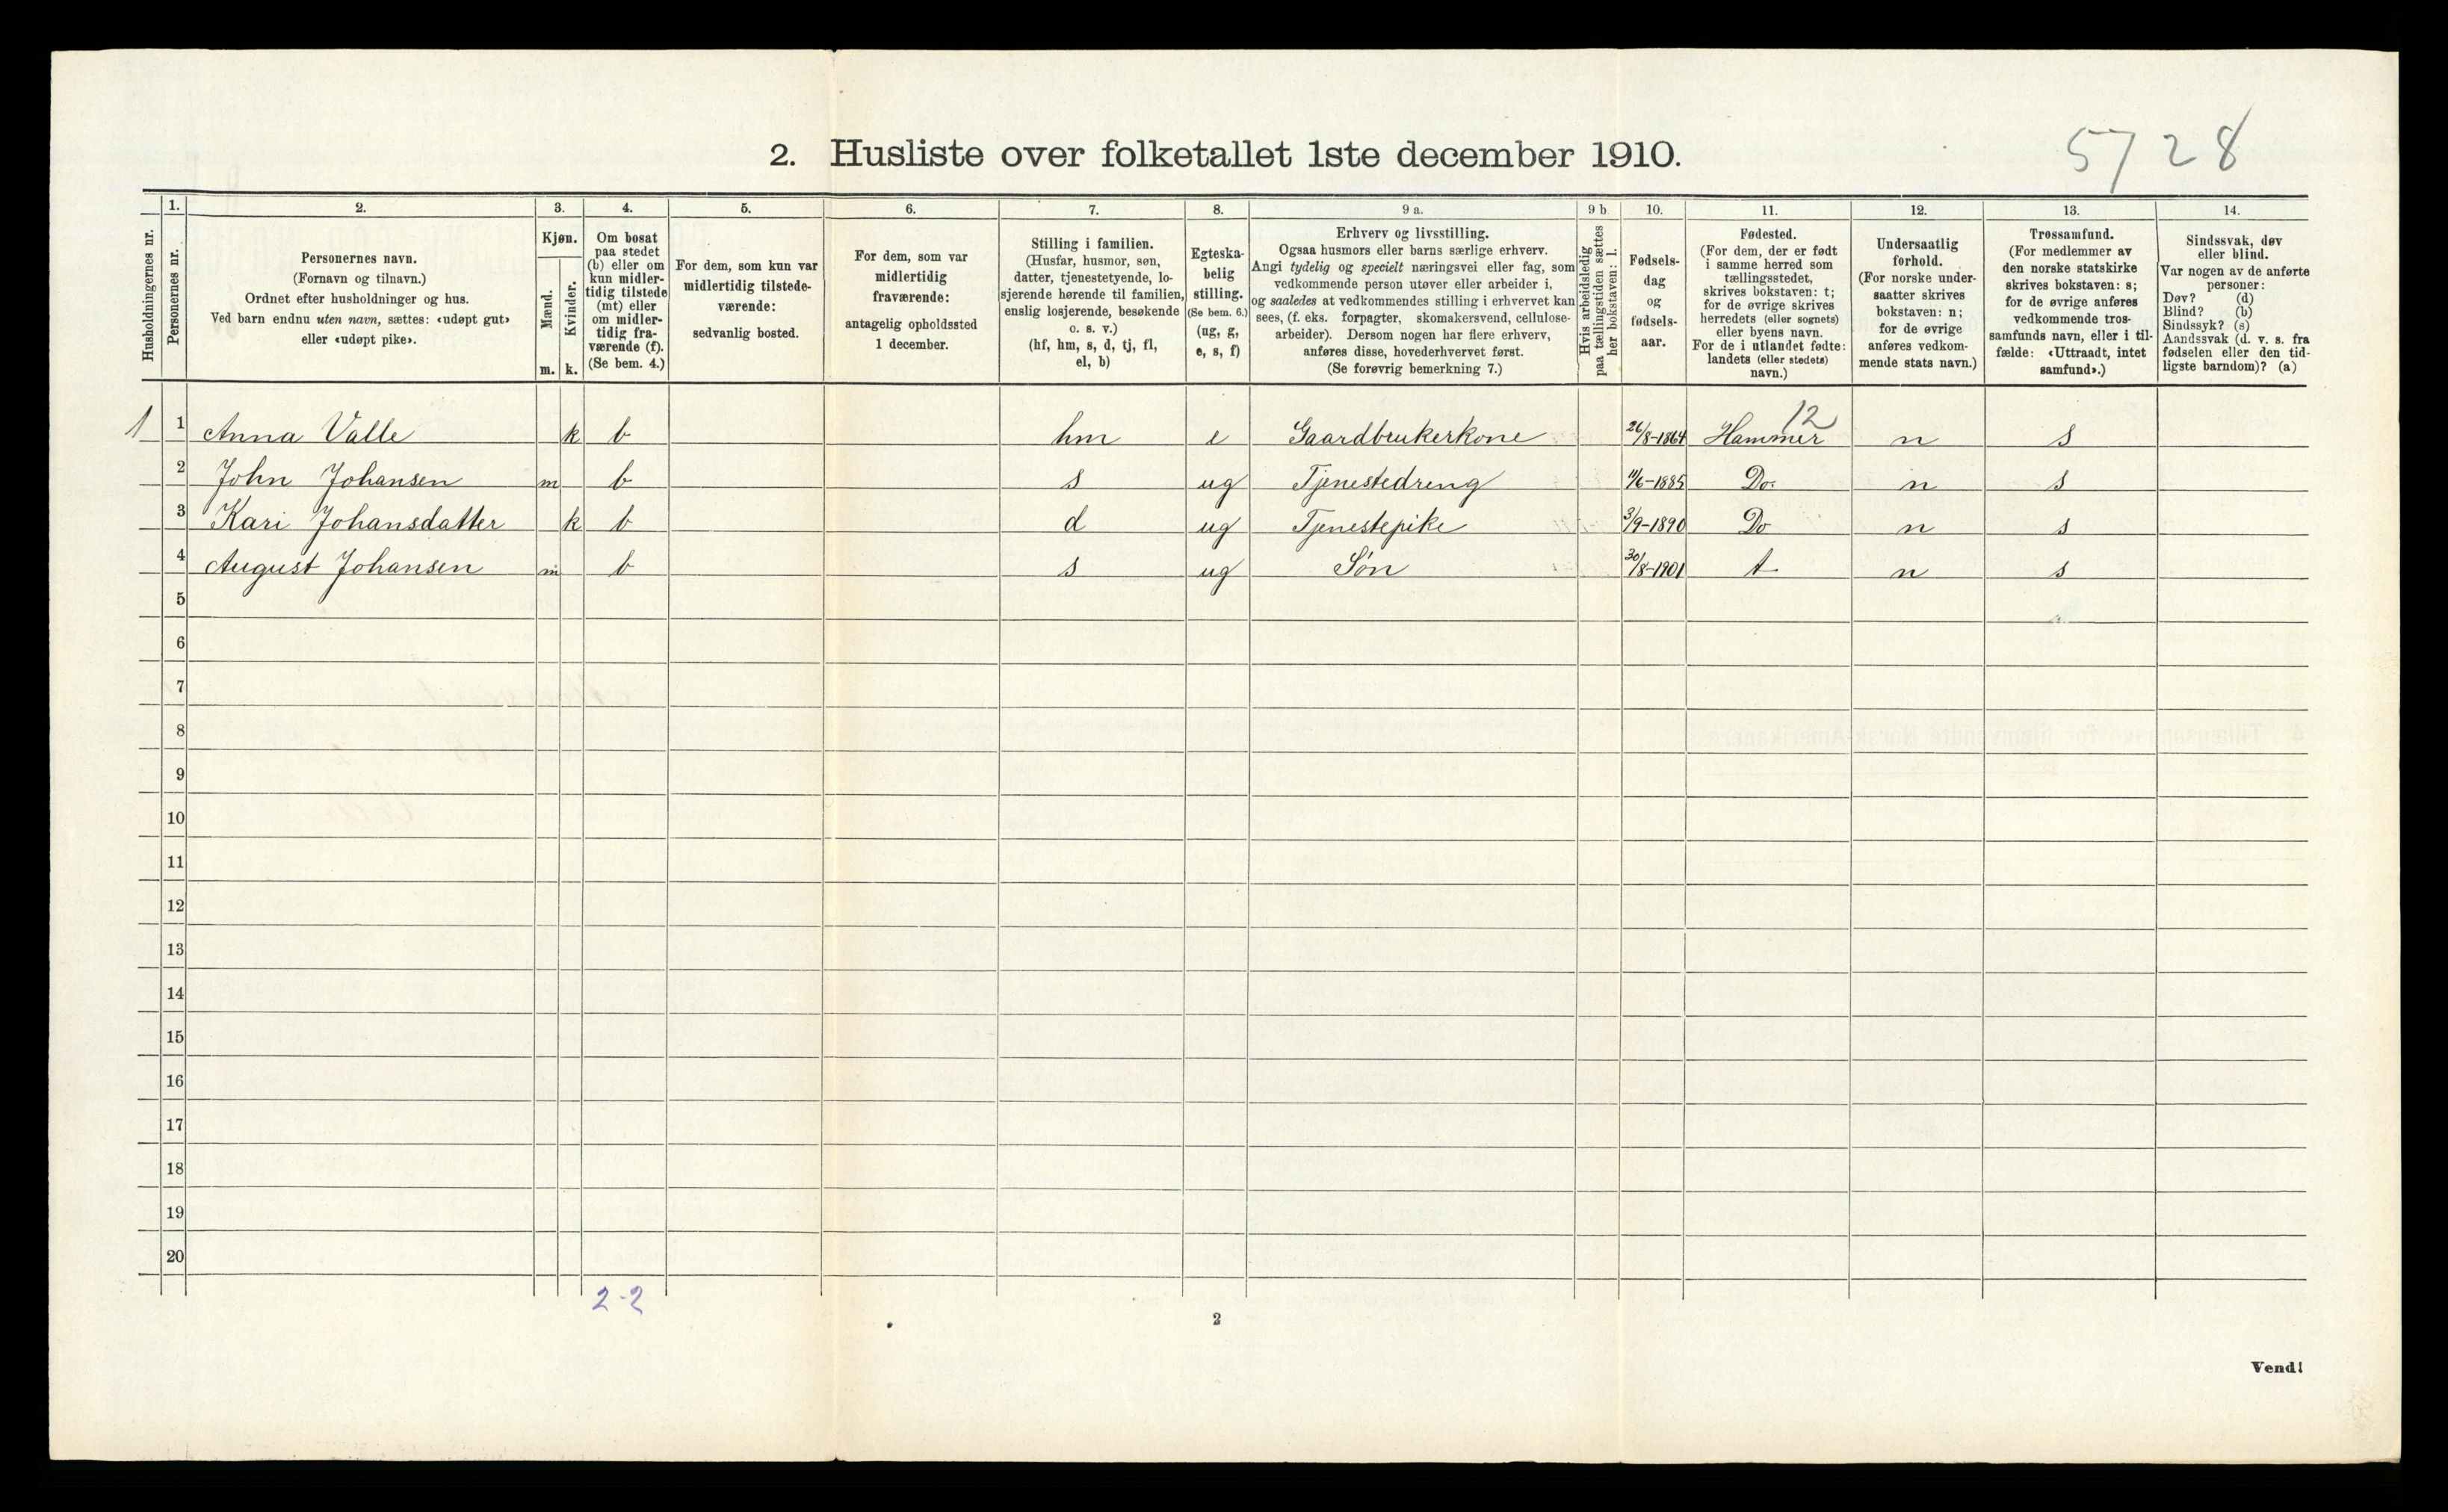 5728
2. Husliste over folketallet 1ste december 1910.
Husholdningernes nr.
1.
Personernes nr.
2.
Personernes navn.
(Fornavn og tilnavn.)
Ordnet efter husholdninger og hus.
Ved barn endnu uten navn, sættes: «udøpt gut»
eller «udøpt pike».
3.
Kjøn.
Mænd.
Kvinder.
m. k.
4.
Om bosat
paa stedet
(b) eller om
kun midler-
tidig tilstede
(mt) eller
om midler-
tidig fra-
værende (f).
(Se bem. 4.)
5.
For dem, som kun var
midlertidig tilstede-
værende:
sedvanlig bosted.
6.
For dem, som var
midlertidig
fraværende:
antagelig opholdssted
1 december.
7.
Stilling i familien.
(Husfar, husmor, søn,
datter, tjenestetyende, lo-
sjerende hørende til familien,
enslig losjerende, besøkende
o. s. v.)
(hf, hm, s, d, tj, fl,
el, b)
8.
Egteska-
belig
stilling.
(Se bem. 6.)
(ug, g,
e, s, f)
9 a.
Erhverv og livsstilling.
Ogsaa husmors eller barns særlige erhverv.
Angi tydelig og specielt næringsvei eller fag, som
vedkommende person utøver eller arbeider i,
og saaledes at vedkommendes stilling i erhvervet kan
sees, (f. eks. forpagter, skomakersvend, cellulose-
arbeider). Dersom nogen har flere erhverv,
anføres disse, hovederhvervet først.
(Se forøvrig bemerkning 7.)
9 b
Hvis arbeidsledig
paa tællingstiden sættes
her bokstaven: l.
10.
Fødsels-
dag
og
fødsels-
aar.
11.
Fødested.
(For dem, der er født
i samme herred som
tællingsstedet,
skrives bokstaven: t;
for de øvrige skrives
herredets (eller sognets)
eller byens navn.
For de i utlandet fødte:
landets (eller stedets)
navn.)
12.
Undersaatlig
forhold.
(For norske under-
saatter skrives
bokstaven: n;
for de øvrige
anføres vedkom-
mende stats navn.)
13.
Trossamfund.
(For medlemmer av
den norske statskirke
skrives bokstaven: s;
for de øvrige anføres
vedkommende tros-
samfunds navn, eller i til-
fælde: «Uttraadt, intet
samfund».)
14.
Sindssvak, døv
eller blind.
Var nogen av de anførte
personer:
Døv? (d)
Blind? (b)
Sindssyk? (s)
Aandssvak (d. v. s. fra
fødselen eller den tid-
ligste barndom)? (a)
12
1 1 Anna Valle k b hm e Gaardbrukerkone 26/8-1864 Hammer n s
2 John Johansen m b s ug Tjenestedreng 11/6-1885 Do. n s
3 Kari Johansdatter k b d ug Tjenestepike 3/9-1890 Do n s
4 August Johansen m b s ug Søn 30/8-1901 t n s
5
6
7
8
9
10
11
12
13
14
15
16
17
18
19
20
2-2
2
Vend!